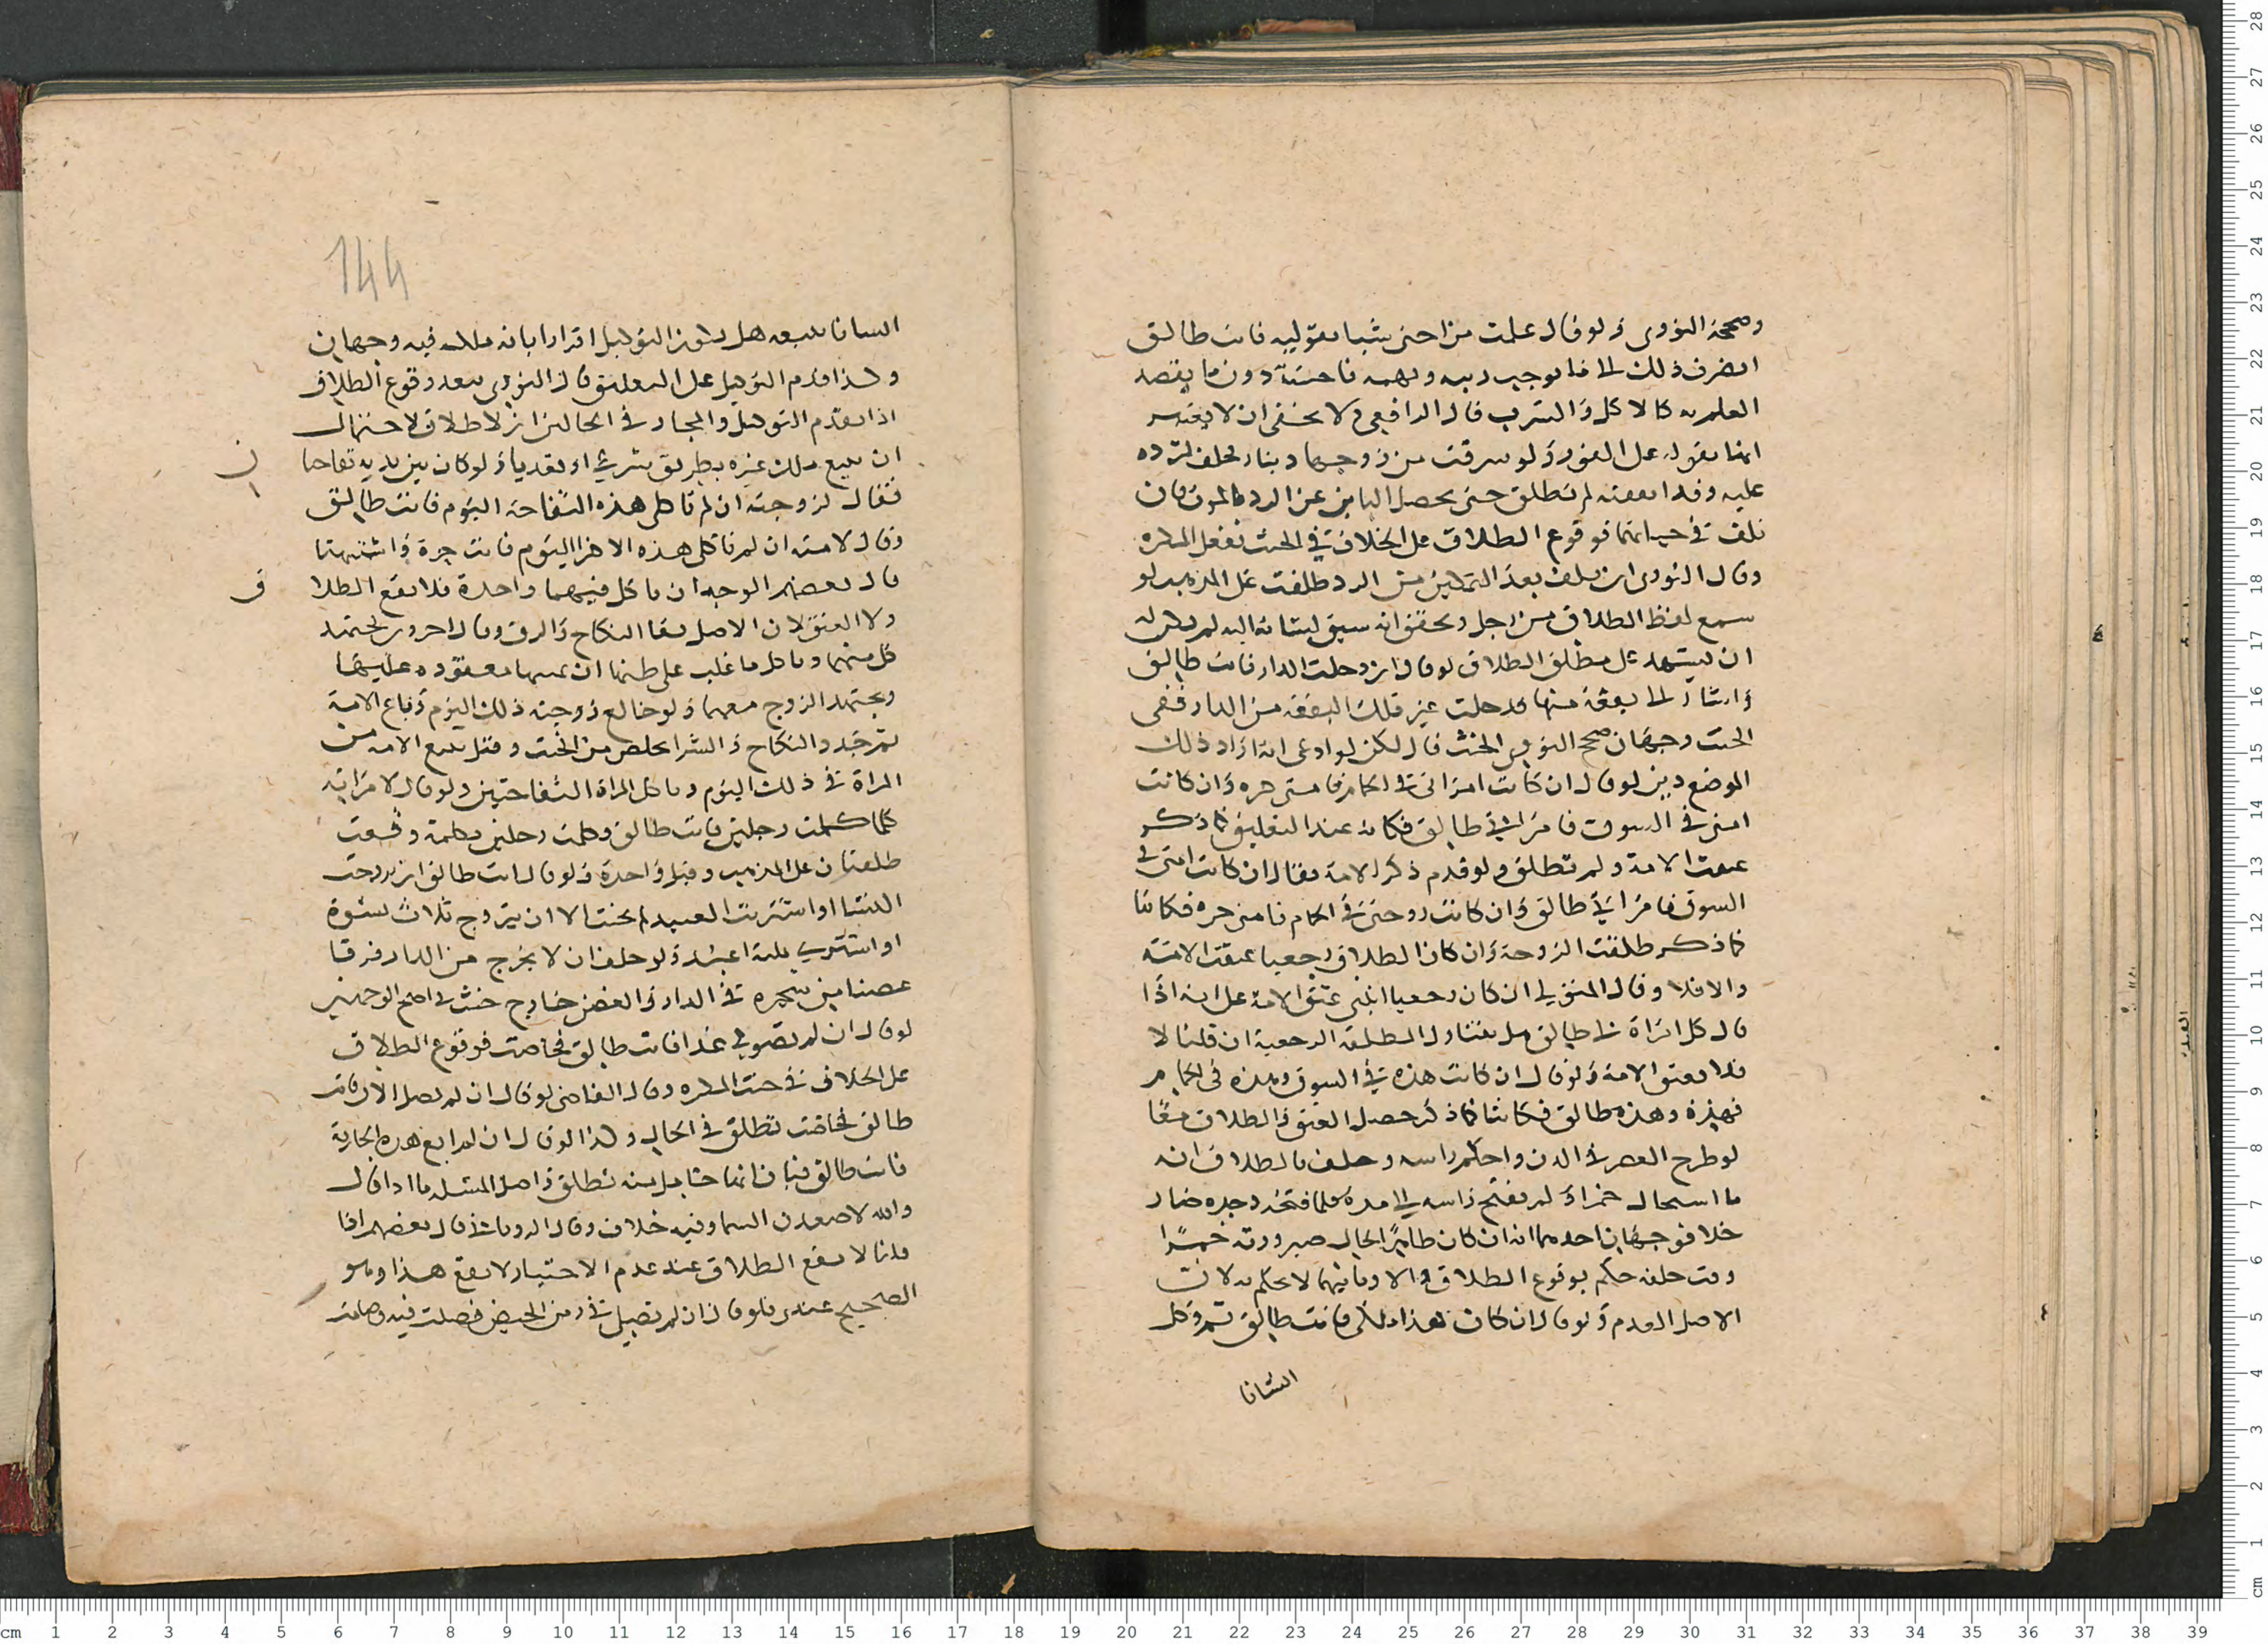 وصححه النووى ولو قال علمت من اختى شيا تقوليه فانت طالق
انصرف ذلك الى ما يوجب ريبه وتهمه فاحشة دون ما يقصد
العلم به كالاكل والشرب قال الرافعى ولا يخفى ان لا يعتبر
انها تقوله على الفور ولو سرقت من زوجها دينار فحلف لترده
عليه وقد انفقته لم تطلق حتى يحصل الياس عن الرد بالموت فان
تلف فى حياتهما فوقوع الطلاق على الخلاف فى الحنث بفعل المكره
وقال النووى ان تلف بعد التمكين من الرد طلقت على المذهب لو
سمع لفظ الطلاق من رجل وتحقق انه سبق لسانه اليه لم يكن له
ان يشهد على مطلق الطلاق لو قال ان دخلت الدار فانت طالق
واشار الى بقعة منها فدخلت غير تلك البقعة من الدار ففى
الحنث وجهان صحح النووى الحنث قال لكن لو ادعى انه اراد ذلك
الموضع دين لو قال ان كانت امراتى فى الحمام فامتى حره وان كانت
امتى فى السوق فامراتى طالق فكانتا عند التعليق كما ذكر
عتقت الامة ولم تطلق ولو قدم ذكر الامة فقال ان كانت امتى فى
السوق فامراتى طالق وان كانت زوجتى فى الحمام فامتى حره فكانتا
كما ذكر طلقت الزوجة وان كان الطلاق رجعيا عتقت الامة
والا فلا وقال المتولى ان كان رجعيا انبنى عتق الامة على انه اذا
قال كل امراة لى طالق هل يتناول المطلقة الرجعية ان قلنا لا
فلا تعتق الامة ولو قال ان كانت هذه فى السوق وهذه فى الحمام
فهذه وهذه طالق فكانتا كما ذكر حصل العتق والطلاق معا
لو طرح العصير فى الدن واحكم راسه وحلف بالطلاق انه
ما استحال خمرا ولم يفتح راسه الى مدة فلما فتحه وجده صار
خلا فوجهان احدهما انه ان كان ظاهر الحال صيرورته خمرا
وقت حلفه حكم بوقوع الطلاق والا وثانيهما لا يحكم به لان
الاصل العدم ولو قال ان كان هذا ملكى فانت طالق ثم وكل
انسانا
144
انسانا ببيعه هل يكون التوكيل اقرارا بانه ملكه فيه وجهان
وكذا لو تقدم التوكيل على التعليق قال النووى يبعد وقوع الطلاق
اذا تقدم التوكيل والمختار فى الحالين ان لا طلاق لاحتمال
ان يبيع ملك غيره بطريق شرعى او تعديا ولو كان بين يديه تفاحتان
فقال لزوجته ان لم تاكلى هذه التفاحة اليوم فانت طالق
وقال لامته ان لم تاكلى هذه الاخرى اليوم فانت حرة واشتبهتا
قال بعضهم الوجه ان تاكل منهما واحدة فلا يقع الطلاق
ولا العتق لان الاصل بقا النكاح والرق وقال اخرون يجتهد
كل منهما وياكل ما غلب على ظنهما ان يمينها معقوده عليها
ويجتهد الزوج معهما ولو خالع زوجته ذلك اليوم وباع الامة
ثم جدد النكاح والشرا تخلص من الحنث وقيل يبيع الامة من
المراة فى ذلك اليوم وتاكل المراة التفاحتين ولو قال لامراته
كلما كلمت رجلين فانت طالق وكلمت رجلين بكلمة وقعت
طلقتان على المذهب وقيل واحدة ولو قال انت طالق ان تزوجت
النسا او اشتريت العبيد لم يحنث الا ان يتزوج ثلاث نسوة
او اشترى ثلثة اعبد ولو حلف ان لا يخرج من الدار فرقا
غصنا من شجره فى الدار والغصن خارج حنث فى اصح الوجهين
لو قال ان لم تصومى غدا فانت طالق فحاضت فوقوع الطلاق
على الخلاف فى حنث المكره وقال القاضى لو قال ان لم تصلى الان فانت
طالق فحاضت تطلق فى الحال وكذا لو قال ان لم ابع هذه الجارية
فانت طالق فبان انها حامل منه تطلق واصل المسئلة ما اذا قال
والله لاصعدن السما وفيه خلاف وقال الرويانى قال بعضهم اذا
قلنا لا يقع الطلاق عند عدم الاختيار لا يقع هذا وهو
الصحيح عندى فلو قال ان لم تصلى فى زمن الحيض فصلت فيه وصامت